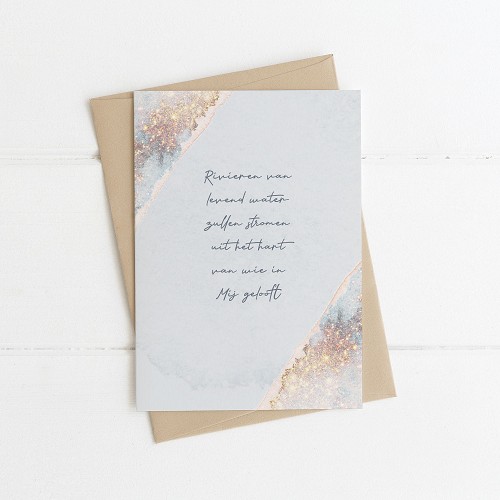 Rivieren van
levend water
zullen stromen
uit het hart
van wie in
Mij gelooft